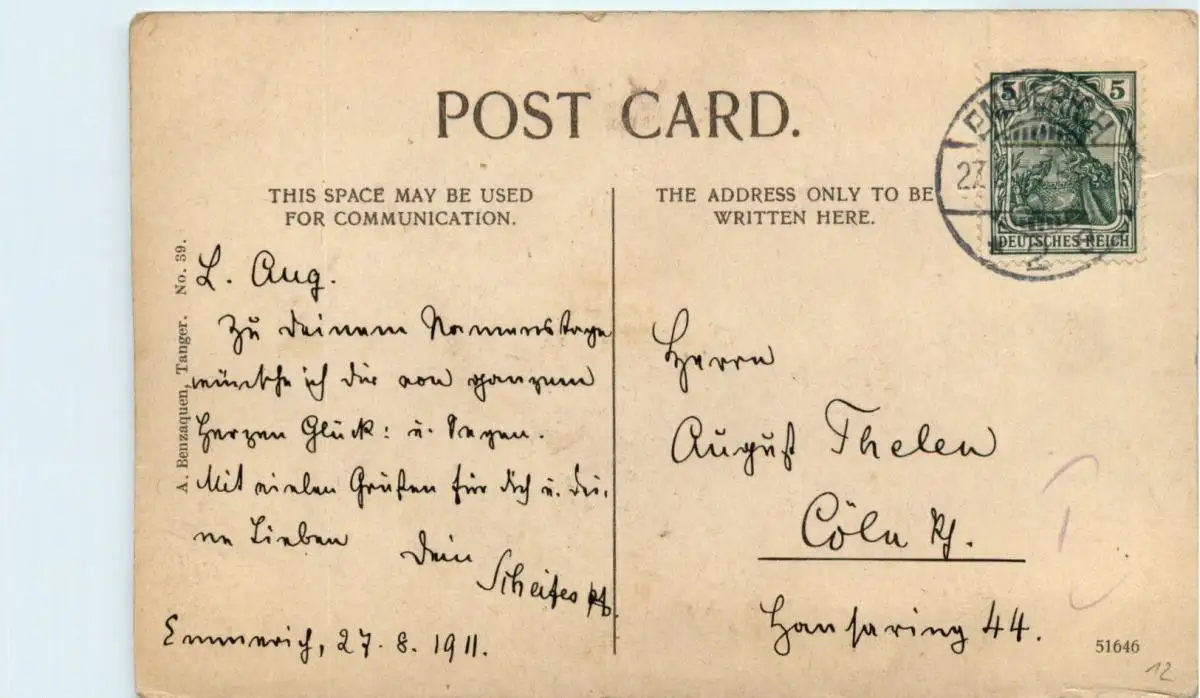 POST CARD.
THIS SPACE MAY BE USED
FOR COMMUNICATION.
THE ADDRESS ONLY TO BE
WRITTEN HERE.
5 5
EMMERICH
27.
2
DEUTSCHES REICH
A. Benzaquen, Tanger. No. 39.
L. Aug.
Zu Deinem Namenstage
wünsche ich Dir von ganzem
Herzen Glück: u. Segen.
Mit vielen Grüßen für Dich u. Dei-
ne Lieben Dein
Emmerich, 27.8.1911.
Herrn
August Thelen
Cöln Rh.
Hansaring 44.
51646
12